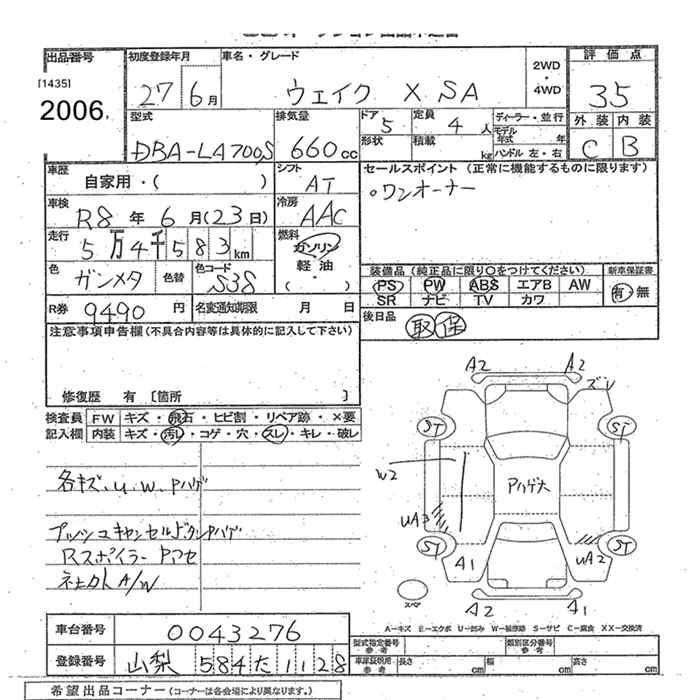 出品番号
[1435]
2006
初度登録年月
27 6月
車名・グレード
ウェイク X SA
2WD
・
4WD
評価点
35
外装 内装
C B
型式
DBA-LA700S
排気量
660cc
ドア
5
形状
定員
4人
積載
kg
ディーラー・並行
モデル
年式 年
ハンドル 左・右
車歴
自家用・( )
シフト
AT
セールスポイント (正常に機能するものに限ります)
○ワンオーナー
車検
R8年6月(23日)
冷房
AAC
走行
5万4千583km
燃料
ガソリン
軽油
・
( )
色
ガンメタ
色替
色コード
S38
装備品 (純正品に限り○をつけてください)
PS PW ABS エアB AW
SR ナビ TV カワ
新車保証書
有・無
R券
9490円
名変通知期限 月 日
後日品
取 保
注意事項申告欄 (不具合内容等は具体的に記入して下さい)
修復歴 有 [箇所 ]
検査員
記入欄
FW キズ・飛石・ヒビ割・リペア跡・×要
内装 キズ・汚レ・コゲ・穴・スレ・キレ・破レ
各キズ.U.W.Pハゲ
プッシュキャンセルドタンPハゲ
RスポイラーPアセ
ネ土カト A/W
A2 A2
ズレ
ST ST
W2
Pハゲ大
UA3
ST ST
A1 UA2
スペア
A2 A1
A−キズ E−エクボ U−凹み W−補修跡 S−サビ C−腐食 XX−交換済
車台番号
0043276
登録番号
山梨 584 た 1128
型式指定番号
参考
類別区分番号
参考
車庫証明用
参考
長さ cm 幅 cm 高さ cm
希望出品コーナー (コーナーは各会場により異なります。)